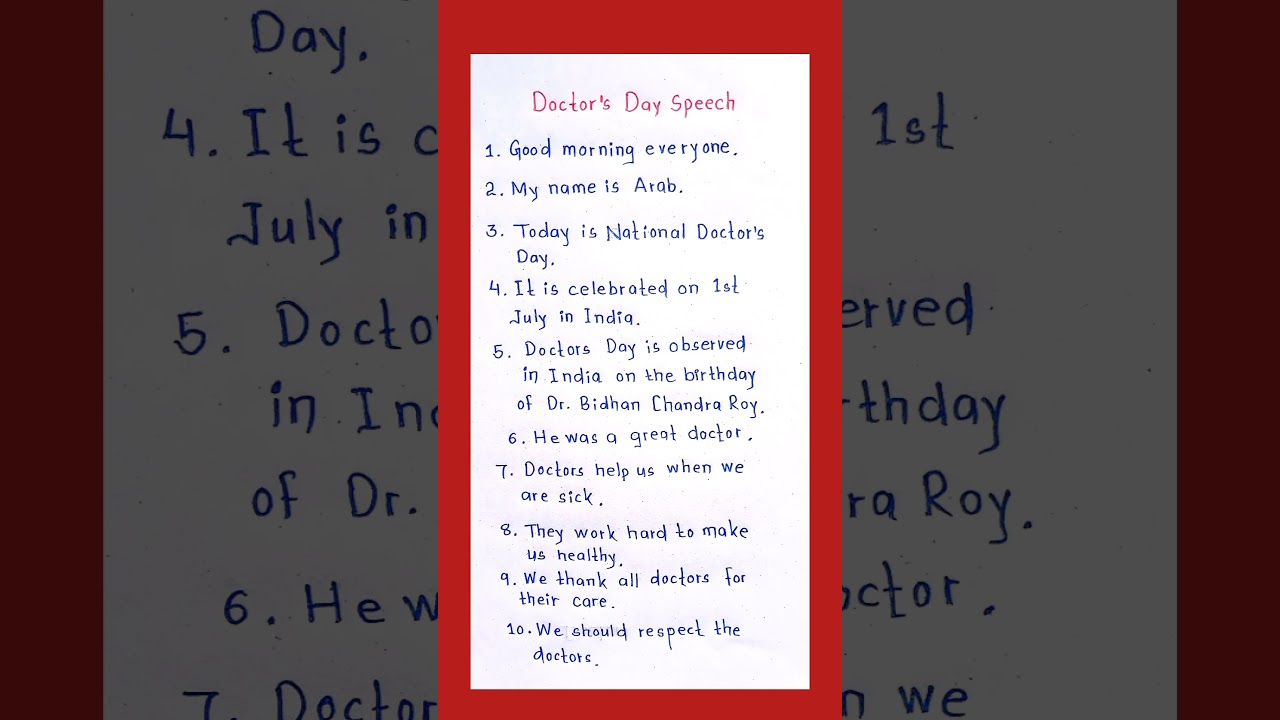 Doctor's Day Speech
1. Good morning everyone.
2. My name is Arab.
3. Today is National Doctor's
Day.
4. It is celebrated on 1st
July in India.
5. Doctors Day is observed
in India on the birthday
of Dr. Bidhan Chandra Roy.
6. He was a great doctor.
7. Doctors help us when we
are sick.
8. They work hard to make
us healthy.
9. We thank all doctors for
their care.
10. We should respect the
doctors.